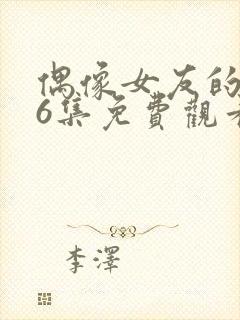 偶像女友的
6集免費觀看
李澤